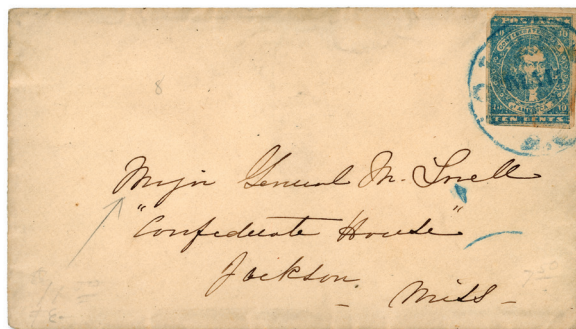 POSTAGE
TEN CENTS
8
Major General M. Lovell
"Confederate House"
Jackson.
Miss -